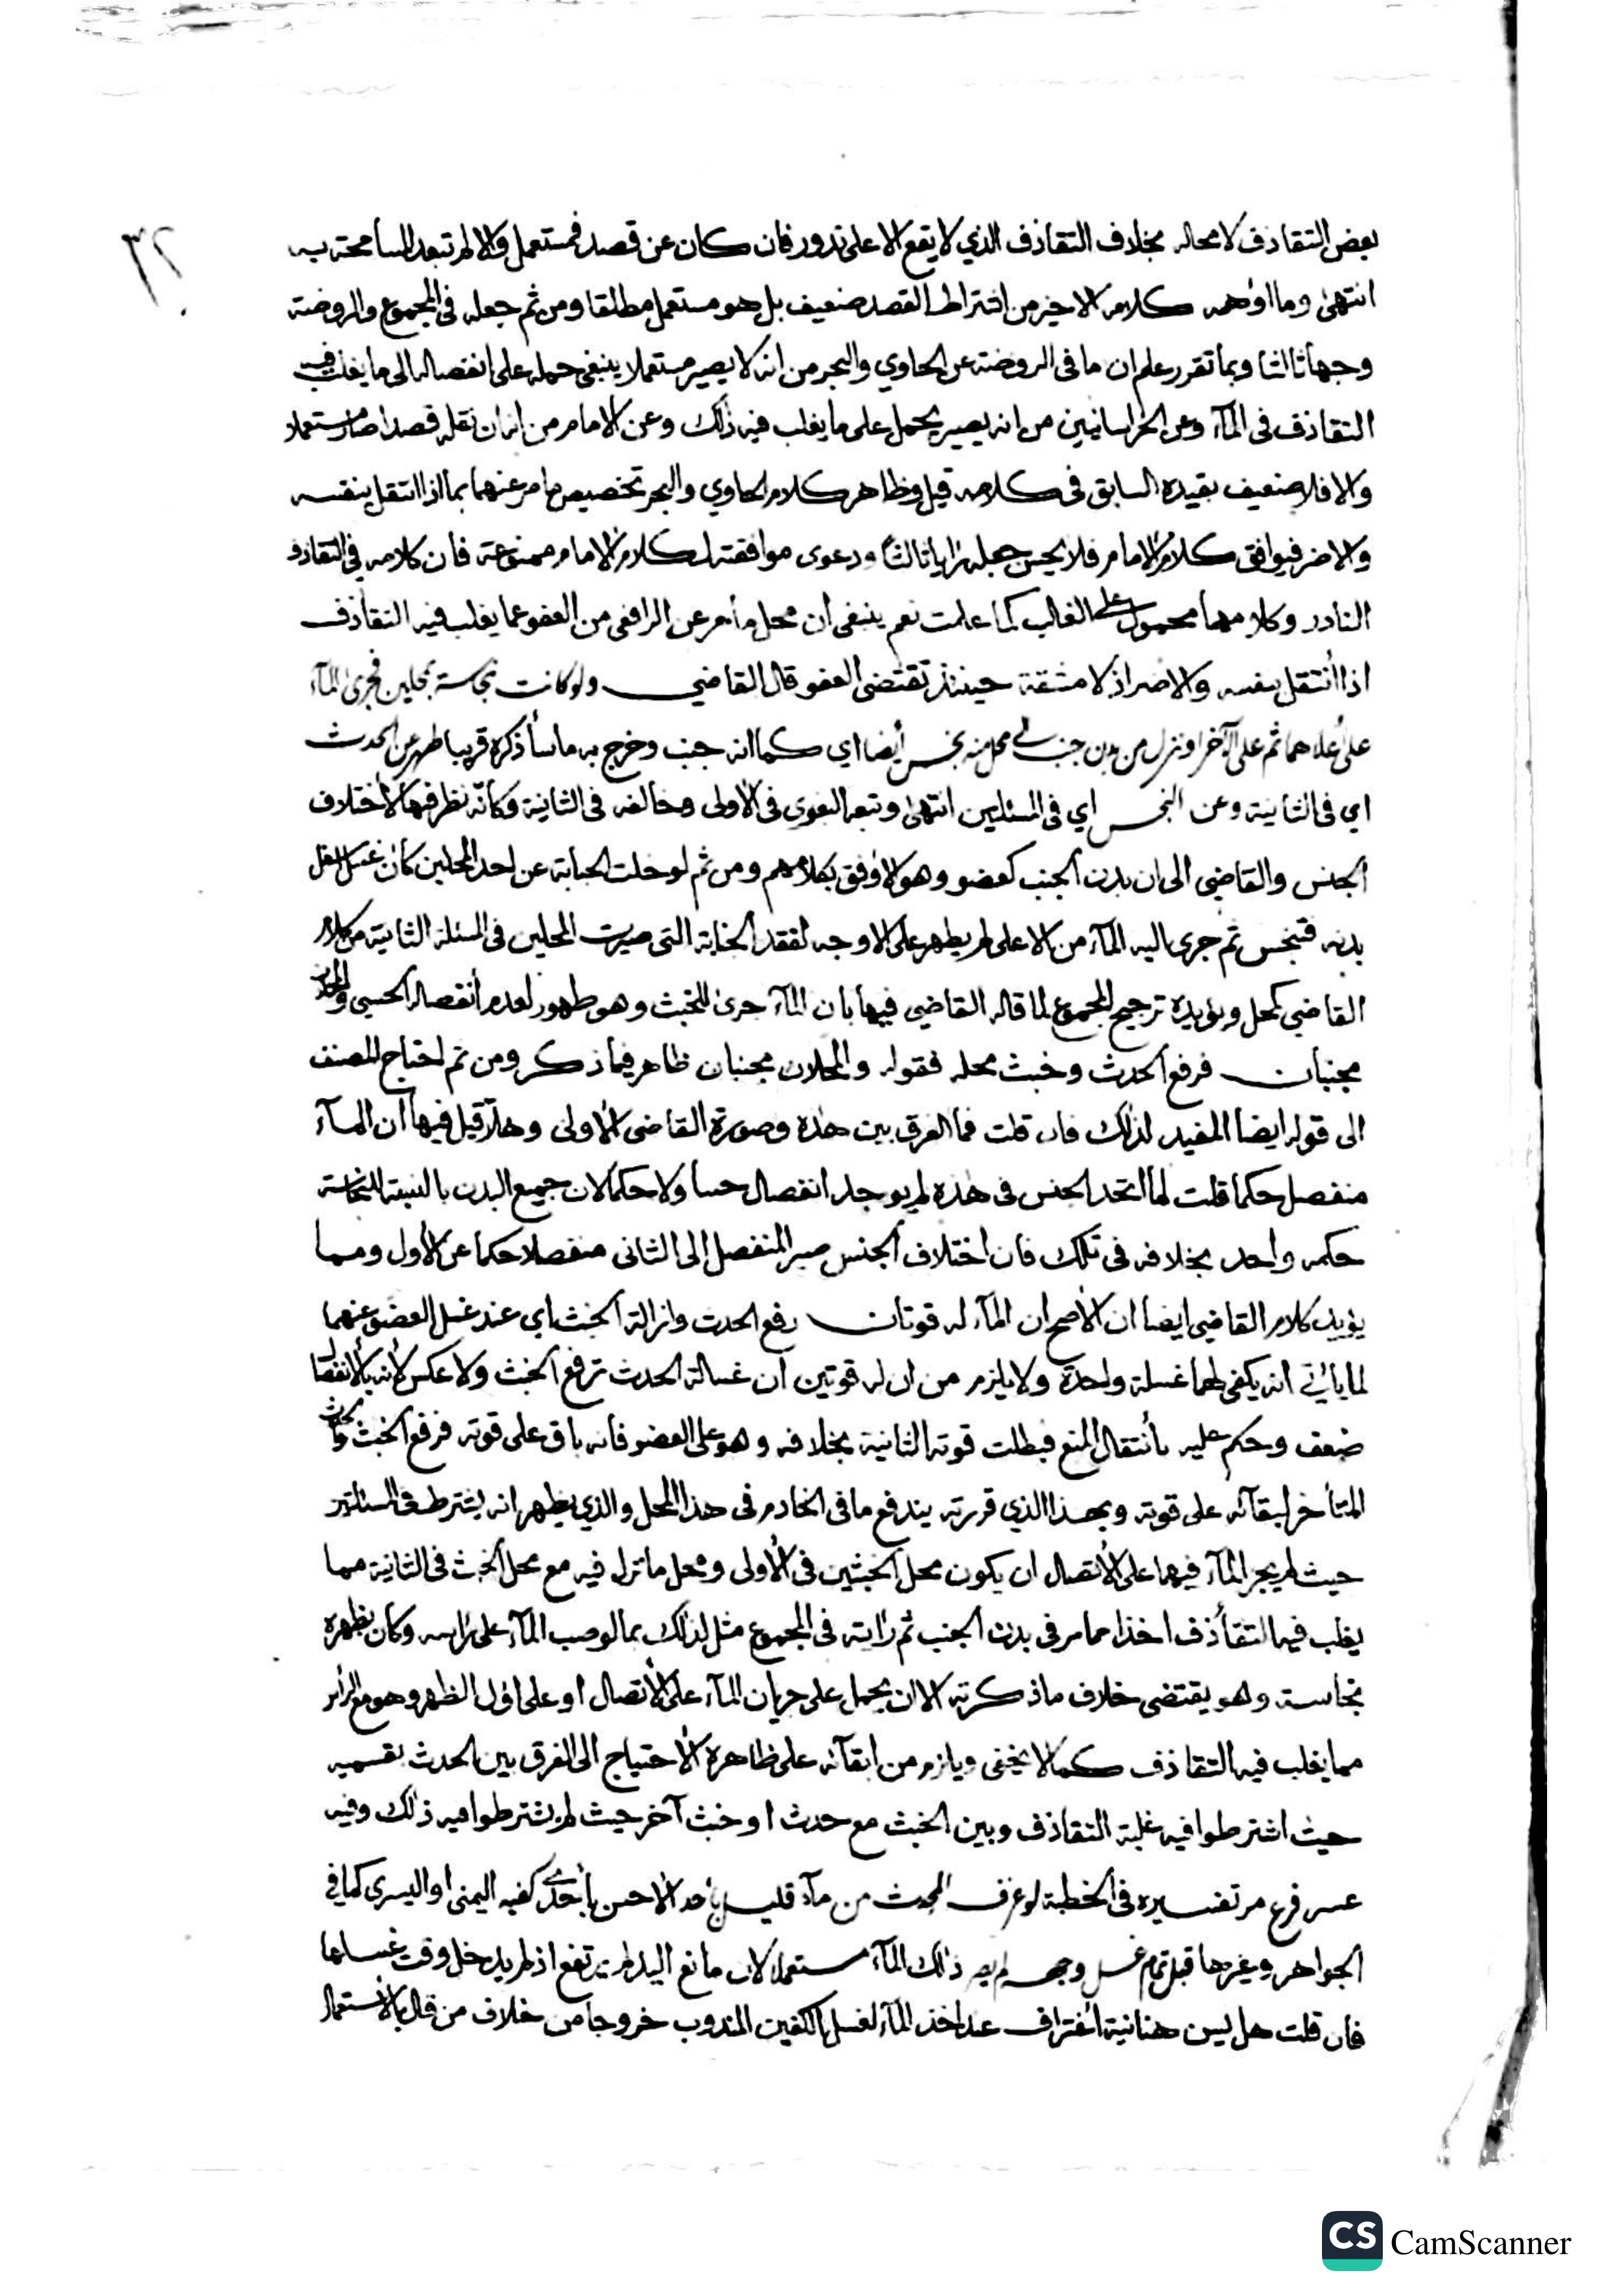 ٣٢
بعض التقاذف لا محالة بخلاف التقاذف الذي لا يقع الا على ندور فان كان عن قصد فمستعمل والا لم تبعد المسامحة به
انتهى وما اوهمه كلامه الاخير من اشتراط القصد ضعيف بل هو مستعمل مطلقا ومن ثم جعله في المجموع والروضة
وجها ثالثا وبما تقرر علم ان ما في الروضة عن الحاوي والبحر من انه لا يصير مستعملا ينبغي حمله على انفصاله الى ما يغلب فيه
التقاذف في المآء وعن الخراسانيين من انه يصير يحمل على ما يغلب فيه ذلك وعن الامام من انه ان نقله قصدا صار مستعملا
والا فلا ضعيف بقيده السابق في كلامه قيل وظاهر كلام الحاوي والبحر تخصيص ما مر عنهما بما اذا انتقل بنفسه
والا ضر فيوافق كلام الامام فلا يحسن جعله رايا ثالثا ودعوى موافقته لكلام الامام ممنوعة فان كلامه في التقاذف
النادر وكلامهما محمول على الغالب كما علمت نعم ينبغي ان محل ما مر عن الرافعي من العفو عما يغلب فيه التقاذف
اذا انتقل بنفسه والا ضر اذ لا مشقة حينئذ تقتضي العفو قال القاضي ولو كانت نجاسة بمحلين فجرى المآء
على اعلاهما ثم على الآخر او نزل من بدن جنب لى محل منه نجس أيضا اي كما انه جنب وخرج به ما سأذكره قريبا طهر عن الحدث
اي في الثانية وعن النجس اي في المسئلتين انتهى وتبعه البغوي في الاولى وخالفه في الثانية وكأنه نظر فيها لاختلاف
الجنس والقاضي الى ان بدن الجنب كعضو وهو الاوفق بكلامهم ومن ثم لو خلت الجنابة عن احد المحلين كان غسل
بدنه فتنجس ثم جرى اليه المآء من الاعلى لم يطهر على الاوجه لفقد الجنابة التي صيرت المحلين في المسئلة الثانية من كلام
القاضي كمحل ويؤيده ترجيح المجموع لما قاله القاضي فيها بان المآء جرى للخبث وهو طهور لعدم انفصاله الحسي والمحلان
مجنبان فرفع الحدث وخبث محله فقوله والمحلان مجنبان ظاهر فيما ذكر ومن ثم احتاج المصنف
الى قوله ايضا المفيد لذلك فان قلت فما الفرق بين هذه وصورة القاضي الاولى وهلا قيل فيها ان المآء
منفصل حكما قلت لما اتحد الجنس في هذه لم يوجد انفصال حسا ولا حكما لان جميع البدن بالنسبة للنجاسة
حكمه واحد بخلافه في تلك فان اختلاف الجنس صير المنفصل الى الثاني منفصلا حكما عن الأول ومما
يؤيد كلام القاضي ايضا ان الاصح ان المآء له قوتان رفع الحدث وازالة الخبث اي عند غسل العضو عنهما
لما يأتي انه يكفي لهما غسلة واحدة ولا يلزم من ان له قوتين ان غسالة الحدث ترفع الخبث ولا عكس لأنه بالانفصال
ضعف وحكم عليه بأنتقال المنع فبطلت قوته الثانية بخلافه وهو على العضو فانه باق على قوته فرفع الخبث والحدث
المتأخر لبقآئه على قوته وبهذا الذي قررته يندفع ما في الخادم في هذا المحل والذي يظهر انه يشترط في المسئلتين
حيث لم يجر المآء فيهما على الاتصال ان يكون محل الخبثين في الأولى ومحل ما نزل فيه مع محل الخبث في الثانية مما
يغلب فيه التقاذف اخذا مما مر في بدن الجنب ثم رايته في المجموع مثل لذلك بما لو صب المآء على رأسه وكان بظهره
نجاسة وهو يقتضي خلاف ما ذكرته الا ان يحمل على جريان المآء على الاتصال او على اول الظهر وهو مع الرأس
مما يغلب فيه التقاذف كما لا يخفى ويلزم من ابقآئه على ظاهره الاحتياج الى الفرق بين الحدث بقسميه
حيث اشترطوا فيه غلبة التقاذف وبين الخبث مع حدث او خبث آخر حيث لم يشترطوا فيه ذلك وفيه
عسر فرع مر تفسيره في الخطبة لو غرف المحدث من مآء قليل بأحد الاحسن بأحدى كفيه اليمنى او اليسرى كما في
الجواهر وغيرها قبل تمام غسل وجهه لم يصر ذلك المآء مستعملا لان مانع اليد لم يرتفع اذ لم يدخل وقت غسلها
فان قلت هل يسن هنا نية اغتراف عند اخذ المآء لغسل الكفين المندوب خروجا من خلاف من قال بالاستعمال
CS CamScanner